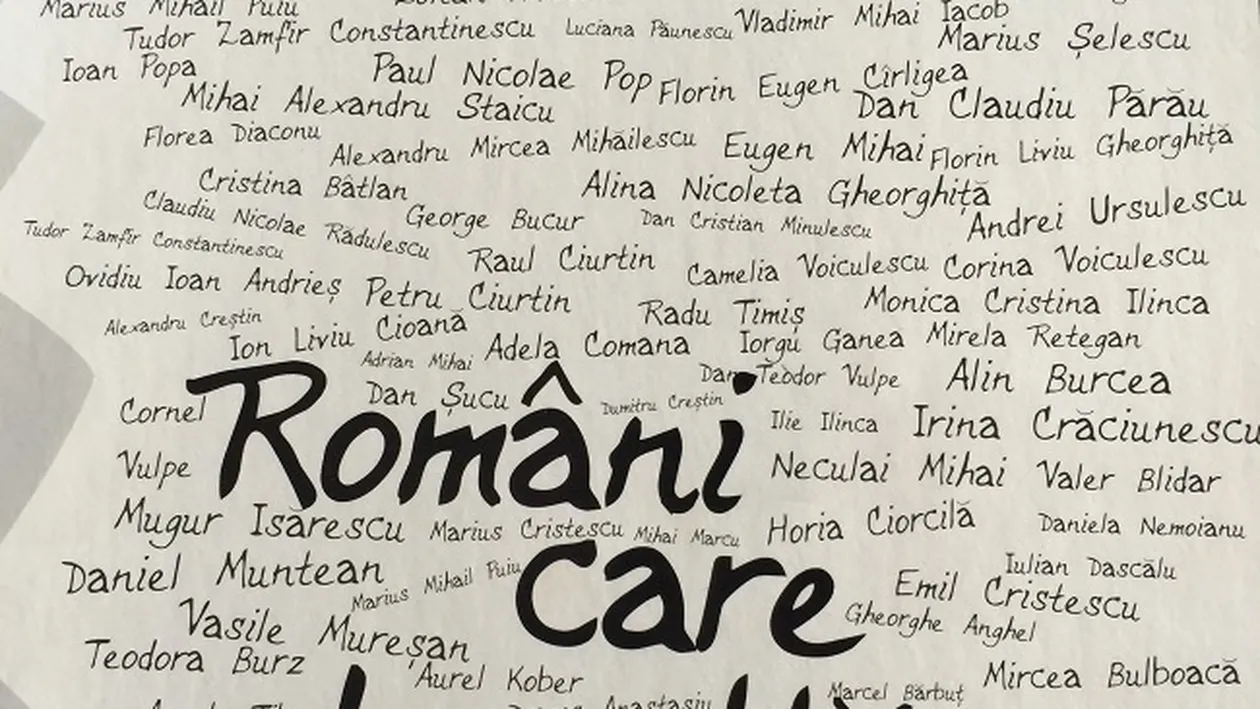 Marius Mihail Puiu
Tudor Zamfir Constantinescu Luciana Păunescu Vladimir Mihai Iacob
Marius Șelescu
Ioan Popa Paul Nicolae Pop Florin Eugen Cîrligea
Mihai Alexandru Staicu Dan Claudiu Părău
Florea Diaconu Alexandru Mircea Mihăilescu Eugen Mihai Florin Liviu Gheorghiță
Cristina Bâtlan Alina Nicoleta Gheorghiță
Claudiu Nicolae Rădulescu George Bucur Dan Cristian Minulescu Andrei Ursulescu
Tudor Zamfir Constantinescu Raul Ciurtin Camelia Voiculescu Corina Voiculescu
Ovidiu Ioan Andrieș Petru Ciurtin Radu Timiș Monica Cristina Ilinca
Alexandru Creștin Ion Liviu Cioană Adela Comana Iorgu Ganea Mirela Retegan
Adrian Mihai Dan Teodor Vulpe Alin Burcea
Cornel Dan Șucu Dumitru Creștin Ilie Ilinca Irina Crăciunescu
Români
Vulpe Neculai Mihai Valer Blidar
Mugur Isărescu Marius Cristescu Mihai Marcu Horia Ciorcilă Daniela Nemoianu
Daniel Muntean Marius Mihail Puiu Iulian Dascălu
care
Emil Cristescu
Vasile Mureșan Gheorghe Anghel
Teodora Burz Aurel Kober Mircea Bulboacă
Marcel Bărbuț
Anastasiu